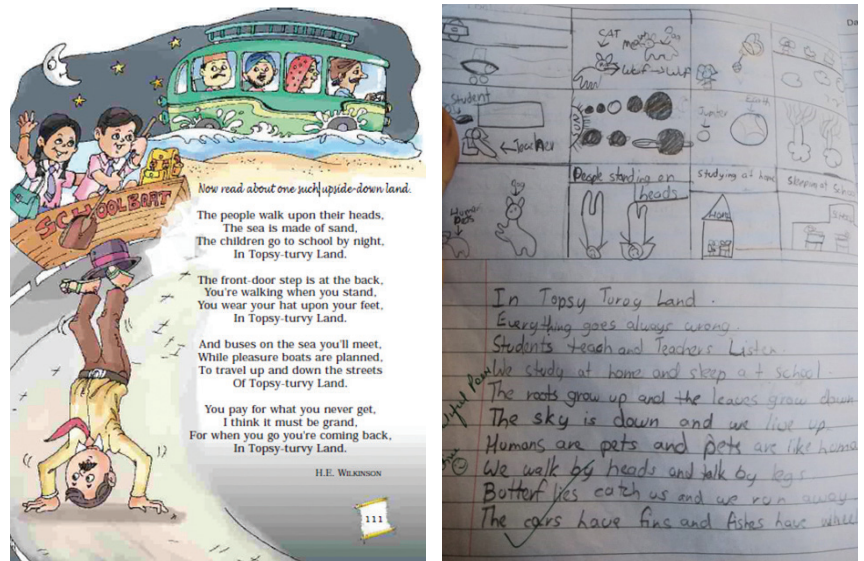 SCHOOL BOAT
Now read about one such upside-down land.
The people walk upon their heads,
The sea is made of sand,
The children go to school by night,
In Topsy-turvy Land.
The front-door step is at the back,
You're walking when you stand,
You wear your hat upon your feet,
In Topsy-turvy Land.
And buses on the sea you'll meet,
While pleasure boats are planned,
To travel up and down the streets
Of Topsy-turvy Land.
You pay for what you never get,
I think it must be grand,
For when you go you're coming back,
In Topsy-turvy Land.
H.E. WILKINSON
111
CAT
Me
Dog
Woof Woof
Student
Teacher
Jupiter
Earth
People standing on
heads
Studying at home
Sleeping at School
Human
Pets
Dog
Home
In Topsy Turvy Land.
Everything goes always wrong.
Students teach and Teachers Listen
We study at home and sleep at school.
The roots grow up and the leaves grow down
The sky is down and we live up.
Humans are pets and pets are like huma
We walk by heads and talk by legs
Butterflies catch us and we run away
The cars have fins and fishes have whee